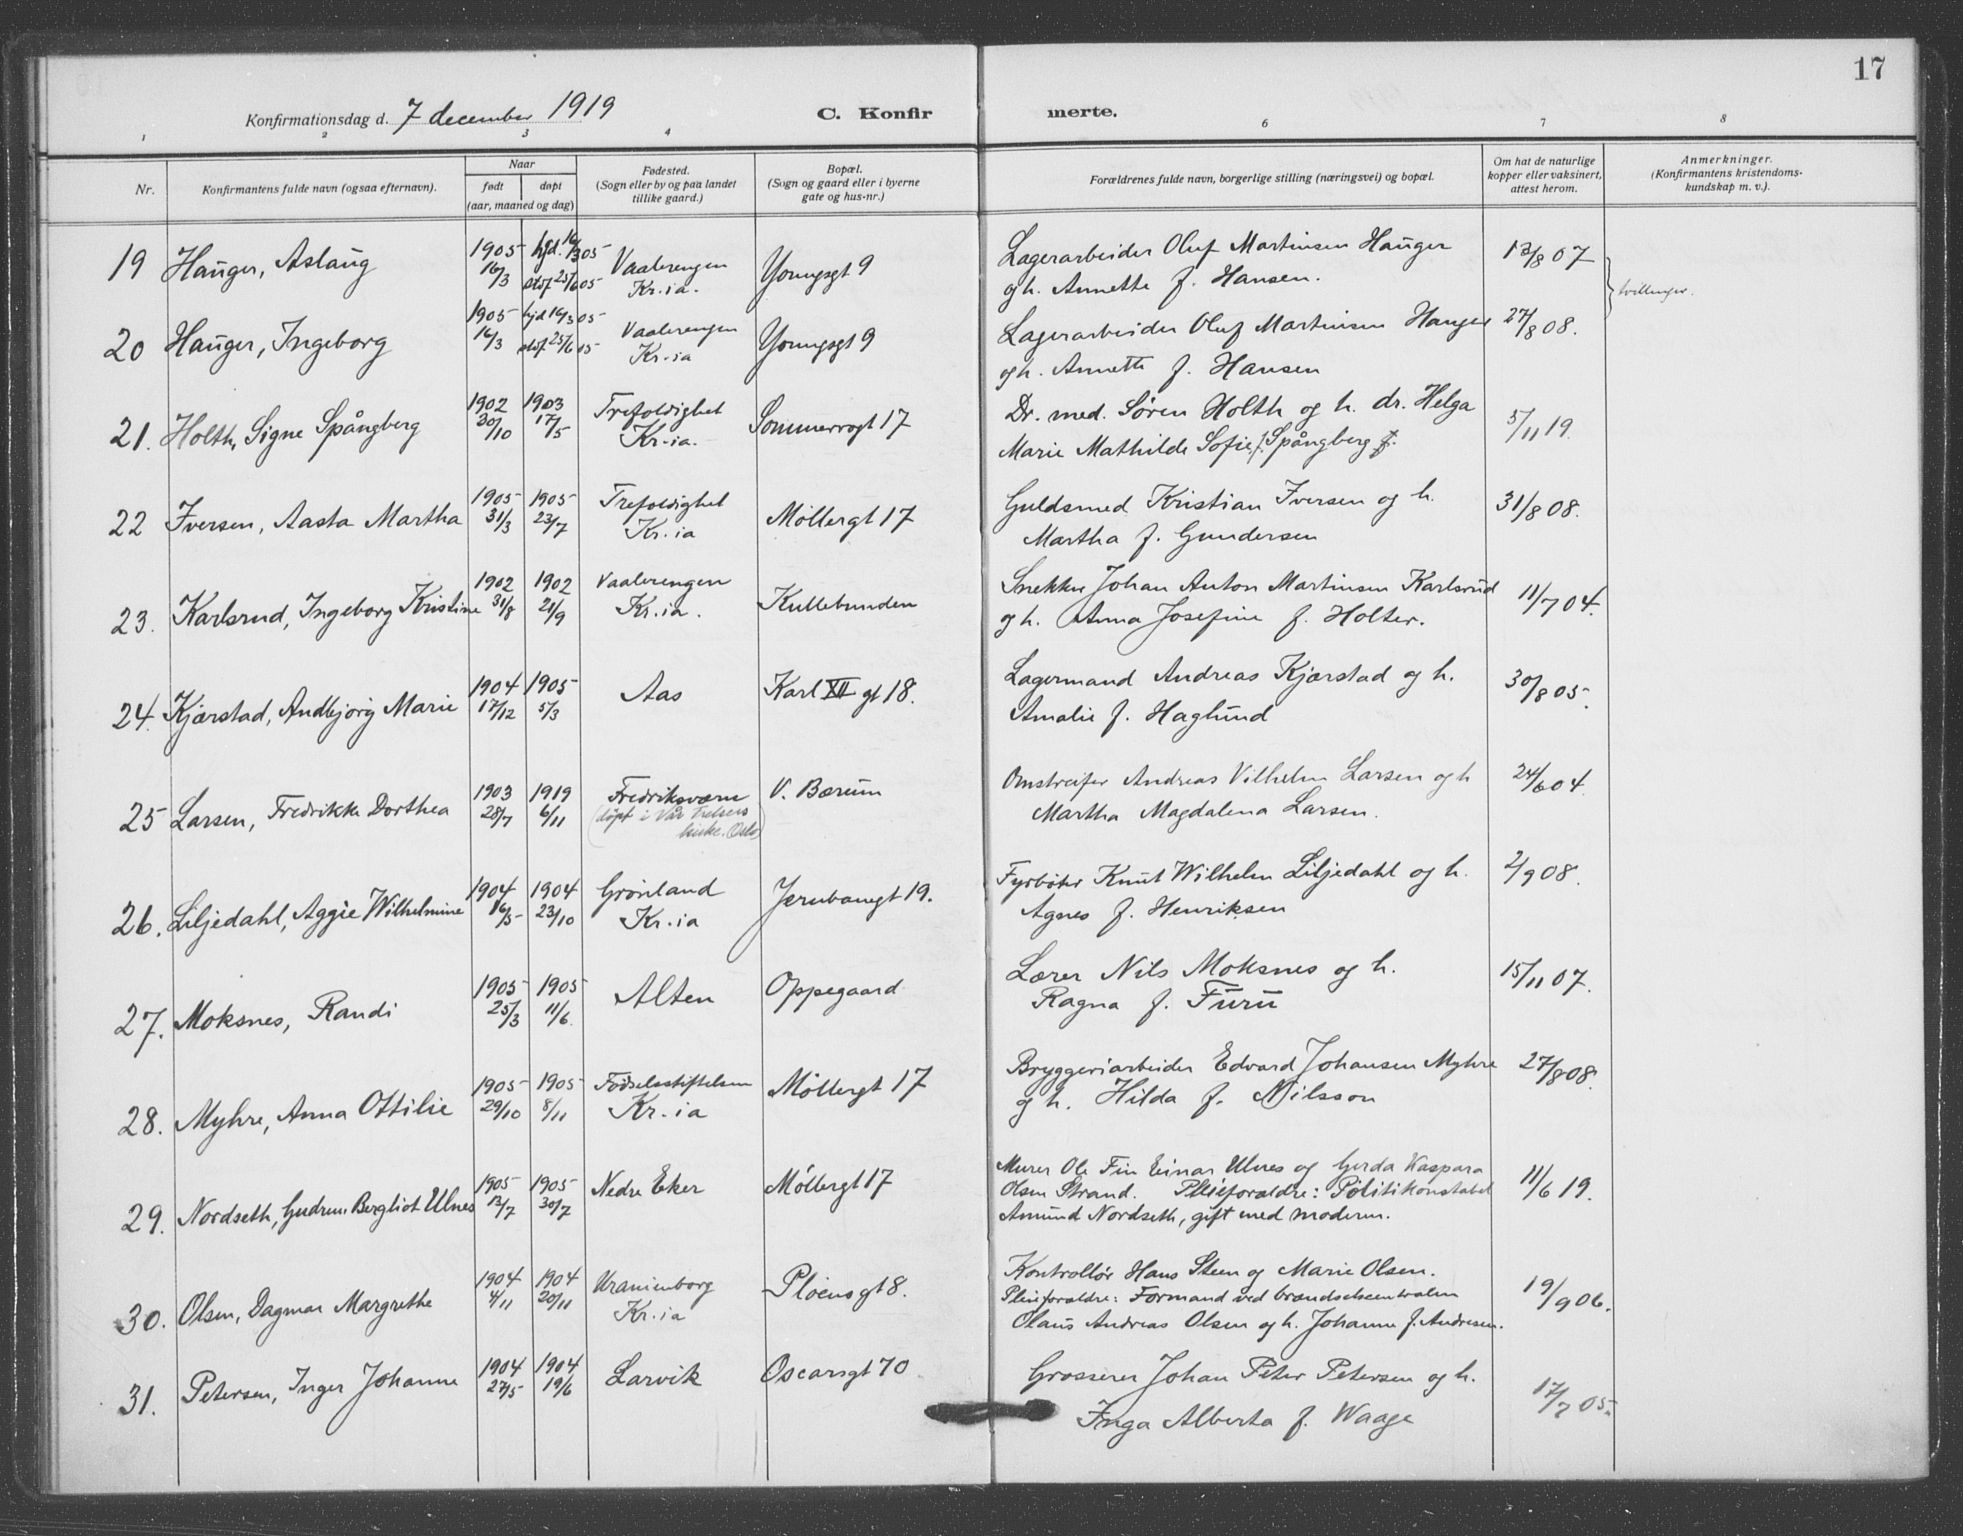 17
Konfirmationsdag d. 7 december 1919 C. Konfir merte.
1 2 3 4 6 7 8
Nr.
Konfirmantens fulde navn (ogsaa efternavn).
Naar
født døpt
(aar, maaned og dag)
Fødested.
(Sogn eller by og paa landet
tillike gaard.)
Bopæl.
(Sogn og gaard eller i byerne
gate og hus-nr.)
Forældrenes fulde navn, borgerlige stilling (næringsvei) og bopæl.
Om hat de naturlige
kopper eller vaksinert,
attest herom.
Anmerkninger.
(Konfirmantens kristendoms-
kundskap m. v.).
19 Hauger, Aslaug
1905 16/3
hjd. 16/3 05
stdf 25/6 05
Vaalerengen
Kr.ia.
Youngsgt 9
Lagerarbeider Oluf Martinsen Hauger
og h. Annette f. Hansen.
13/8 07
tvillinger.
20 Hauger, Ingeborg
1905 16/3
hjd 16/3 05
stdf 25/6 05
Vaalerengen
Kr.ia
Youngsgt 9
Lagerarbeider Oluf Martinsen Hauger
og h. Annette f. Hansen
27/8 08.
21. Holth, Signe Spångberg
1902 30/10
1903 17/5
Trefoldighet
Kr.ia.
Sommerrogt 17
Dr. med. Søren Holth og h. dr. Helga
Marie Mathilde Sofie f. Spångberg f.
5/11 19.
22 Iversen, Aasta Martha
1905 31/3
1905 23/7
Trefoldighet
Kr.ia
Møllergt 17
Guldsmed Kristian Iversen og h.
Martha f. Gundersen
31/8 08.
23. Karlsrud, Ingeborg Kristine
1902 31/8
1902 21/9
Vaalerengen
Kr.ia.
Kullebunden
Snekker Johan Anton Martinsen Karlsrud
og h. Anna Josefine f. Holter.
11/7 04.
24. Kjærstad, Andbjørg Marie
1904 17/12
1905 5/3
Aas
Karl XII gt 18.
Lagermand Andreas Kjærstad og h.
Amalie f. Haglund
30/8 05.
25 Larsen, Fredrikke Dorthea
1903 28/7
1919 6/11
Fredriksværn
(døpt i Vår Frelsers
kirke. Oslo)
V. Bærum
Omstreifer Andreas Vilhelm Larsen og h
Martha Magdalena Larsen.
24/6 04.
26. Liljedahl, Aggie Wilhelmine
1904 16/5
1904 23/10
Grønland
Kr.ia
Jernbangt 19.
Fyrbøter Knut Wilhelm Liljedahl og h.
Agnes f. Henriksen
2/9 08.
27. Moksnes, Randi
1905 25/3
1905 11/6.
Alten
Oppegaard
Lærer Nils Moksnes og h.
Ragna f. Furu
15/11 07.
28. Myhre, Anna Ottilie
1905 29/10
1905 8/11
Fødselsstiftelsen
Kr.ia
Møllergt 17
Bryggeriarbeider Edvard Johansen Myhre
og h. Hilda f. Nilsson
27/8 08.
29. Nordseth, Gudrun Bergliot Ulnes
1905 13/7
1905 30/7
Nedre Eker
Møllergt 17
Murer Ole Fin Einar Ulnes og Gerda Kaspara
Olsen Strand. Pleieforældre: Politikonstabel
Amund Nordseth, gift med moderen.
11/6 19.
30. Olsen, Dagmar Margrethe
1904 4/11
1904 20/11
Uranienborg
Kr.ia
Pløensgt 8.
Kontrollør Hans Steen og Marie Olsen.
Pleieforældre: Formand ved brændselscentralen
Olaus Andreas Olsen og h. Johanne f. Andresen.
19/9 06.
31. Petersen, Inger Johanne
1904 27/5
1904 19/6
Larvik
Oscarsgt 70
Grosserer Johan Peter Petersen og h.
Inga Alberta f. Waage
17/7 05.